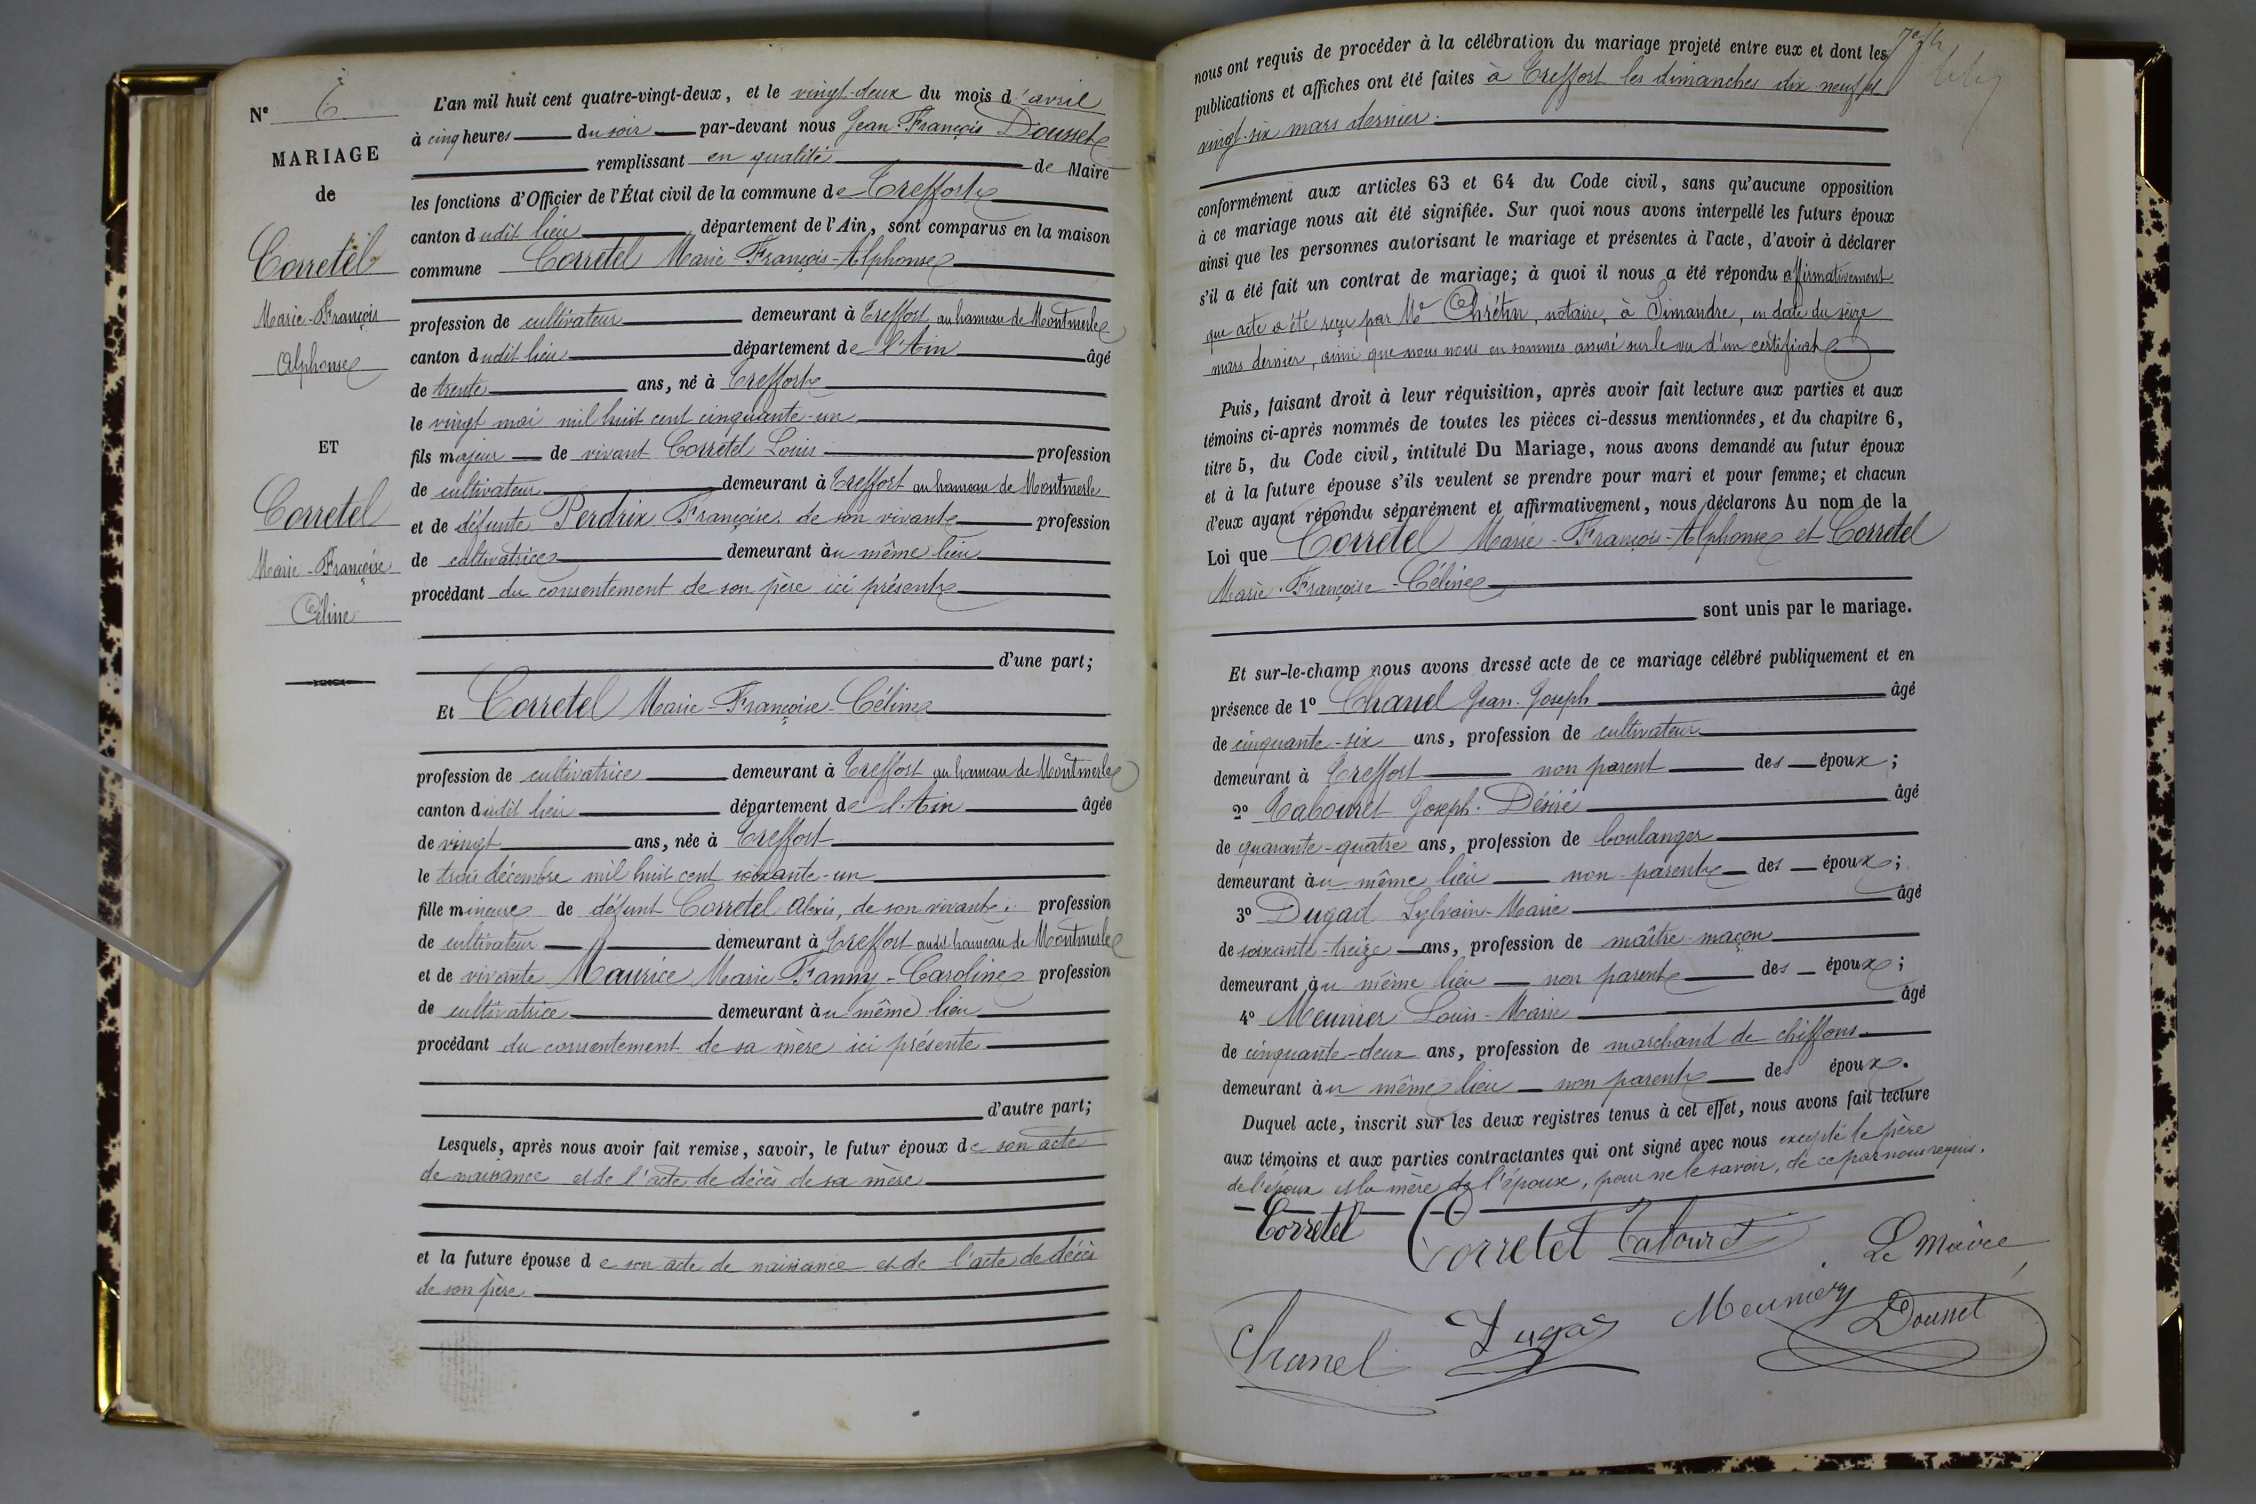 N° 6
MARIAGE
de
Corretel
Marie-François
Alphonse
ET
Corretel
Marie-Françoise
Céline
L'an mil huit cent quatre-vingt-deux, et le vingt-deux du mois d'avril
à cinq heures du soir par-devant nous Jean-François Dousset
remplissant en qualité de Maire
les fonctions d'Officier de l'État civil de la commune de Treffort
canton dudit lieu département de l'Ain, sont comparus en la maison
commune Corretel Marie-François-Alphonse
profession de cultivateur demeurant à Treffort au hameau de Montmerle
canton dudit lieu département de l'Ain âgé
de trente ans, né à Treffort
le vingt mai mil huit cent cinquante-un
fils majeur de vivant Corretel Louis profession
de cultivateur demeurant à Treffort au hameau de Montmerle
et de défunte Perdrix Françoise, de son vivant profession
de cultivatrice demeurant au même lieu
procédant du consentement de son père ici présent
d'une part;
Et Corretel Marie-Françoise-Céline
profession de cultivatrice demeurant à Treffort au hameau de Montmerle
canton dudit lieu département de l'Ain âgée
de vingt ans, née à Treffort
le trois décembre mil huit cent soixante-un
fille mineure de défunt Corretel Alexis, de son vivant profession
de cultivateur demeurant à Treffort audit hameau de Montmerle
et de vivante Maurice Marie Fanny-Caroline profession
de cultivatrice demeurant au même lieu
procédant du consentement de sa mère ici présente
d'autre part;
Lesquels, après nous avoir fait remise, savoir, le futur époux de son acte
de naissance et de l'acte de décès de sa mère
et la future épouse de son acte de naissance et de l'acte de décès
de son père
nous ont requis de procéder à la célébration du mariage projeté entre eux et dont les
publications et affiches ont été faites à Treffort les dimanches dix-neuf et
vingt-six mars dernier.
conformément aux articles 63 et 64 du Code civil, sans qu'aucune opposition
à ce mariage nous ait été signifiée. Sur quoi nous avons interpellé les futurs époux
ainsi que les personnes autorisant le mariage et présentes à l'acte, d'avoir à déclarer
s'il a été fait un contrat de mariage; à quoi il nous a été répondu affirmativement
que acte a été reçu par Me Chrétin, notaire, à Simandre, en date du seize
mars dernier, ainsi que nous nous en sommes assuré sur le vu d'un certificat
Puis, faisant droit à leur réquisition, après avoir fait lecture aux parties et aux
témoins ci-après nommés de toutes les pièces ci-dessus mentionnées, et du chapitre 6,
titre 5, du Code civil, intitulé Du Mariage, nous avons demandé au futur époux
et à la future épouse s'ils veulent se prendre pour mari et pour femme; et chacun
d'eux ayant répondu séparément et affirmativement, nous déclarons Au nom de la
Loi que Corretel Marie-François-Alphonse et Corretel
Marie-Françoise-Céline
sont unis par le mariage.
Et sur-le-champ nous avons dressé acte de ce mariage célébré publiquement et en
présence de 1° Chanel Jean-Joseph âgé
de cinquante-six ans, profession de cultivateur
demeurant à Treffort non parent des époux;
2° Tabouret Joseph-Désiré âgé
de quarante-quatre ans, profession de boulanger
demeurant au même lieu non parent des époux;
3° Dugad Sylvain-Marie âgé
de soixante-treize ans, profession de maître-maçon
demeurant au même lieu non parent des époux;
4° Meunier Louis-Marie âgé
de cinquante-deux ans, profession de marchand de chiffons
demeurant au même lieu non parent des époux.
Duquel acte, inscrit sur les deux registres tenus à cet effet, nous avons fait lecture
aux témoins et aux parties contractantes qui ont signé avec nous excepté le père
de l'époux et la mère de l'épouse, pour ne le savoir, de ce par nous requis.
Corretel Corretet Tabouret
Le Maire
Chanel Dugas Meunier Dousset